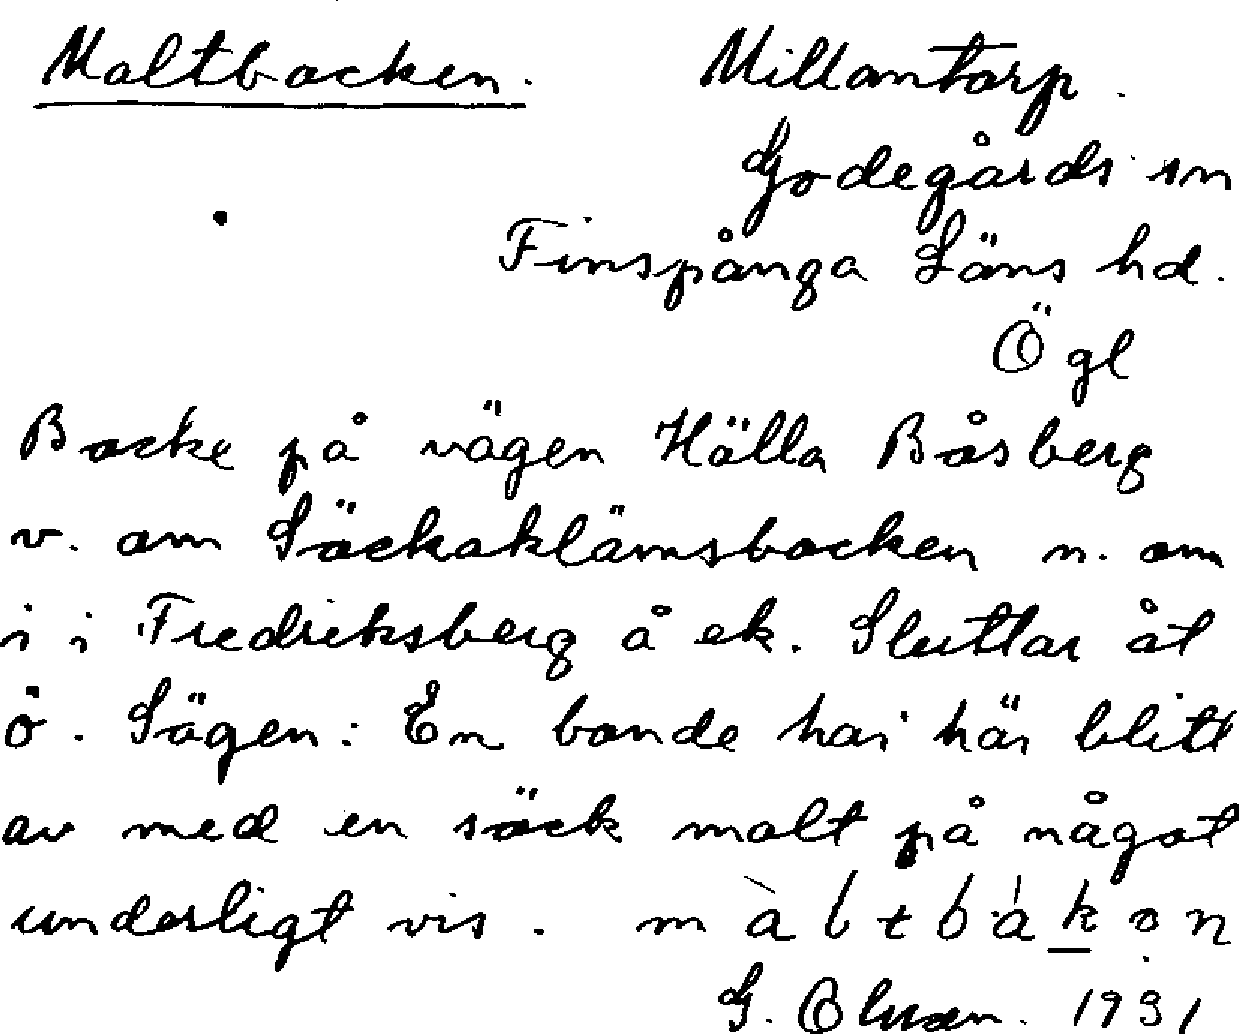 Maltbacken. Millantorp.
Godegårds sn
Finspånga Läns hd.
Ögl
Backe på vägen Hälla Båsberg
v. om Säckaklämsbacken n. om
i i Fredriksberg å ek. Sluttar åt
ö. Sägen: En bonde har här blitt
av med en säck malt på något
underligt vis.
G. 1931